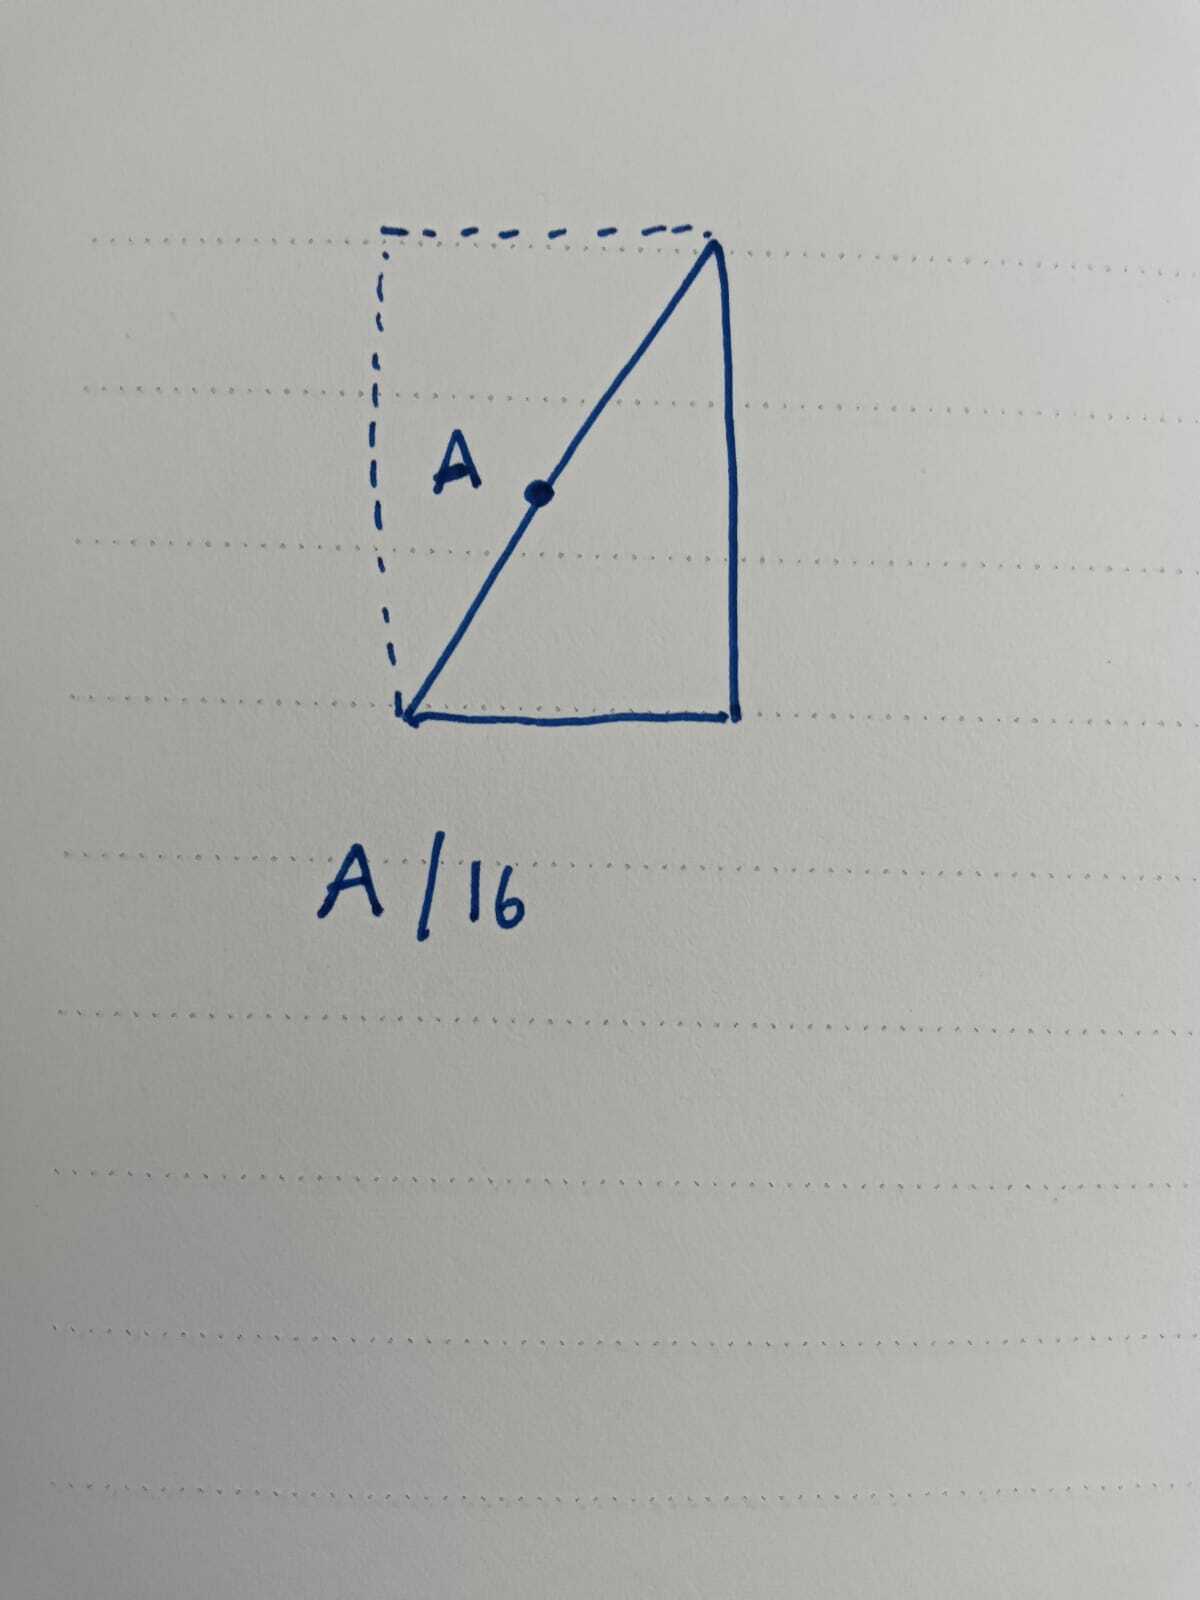 A
A/16